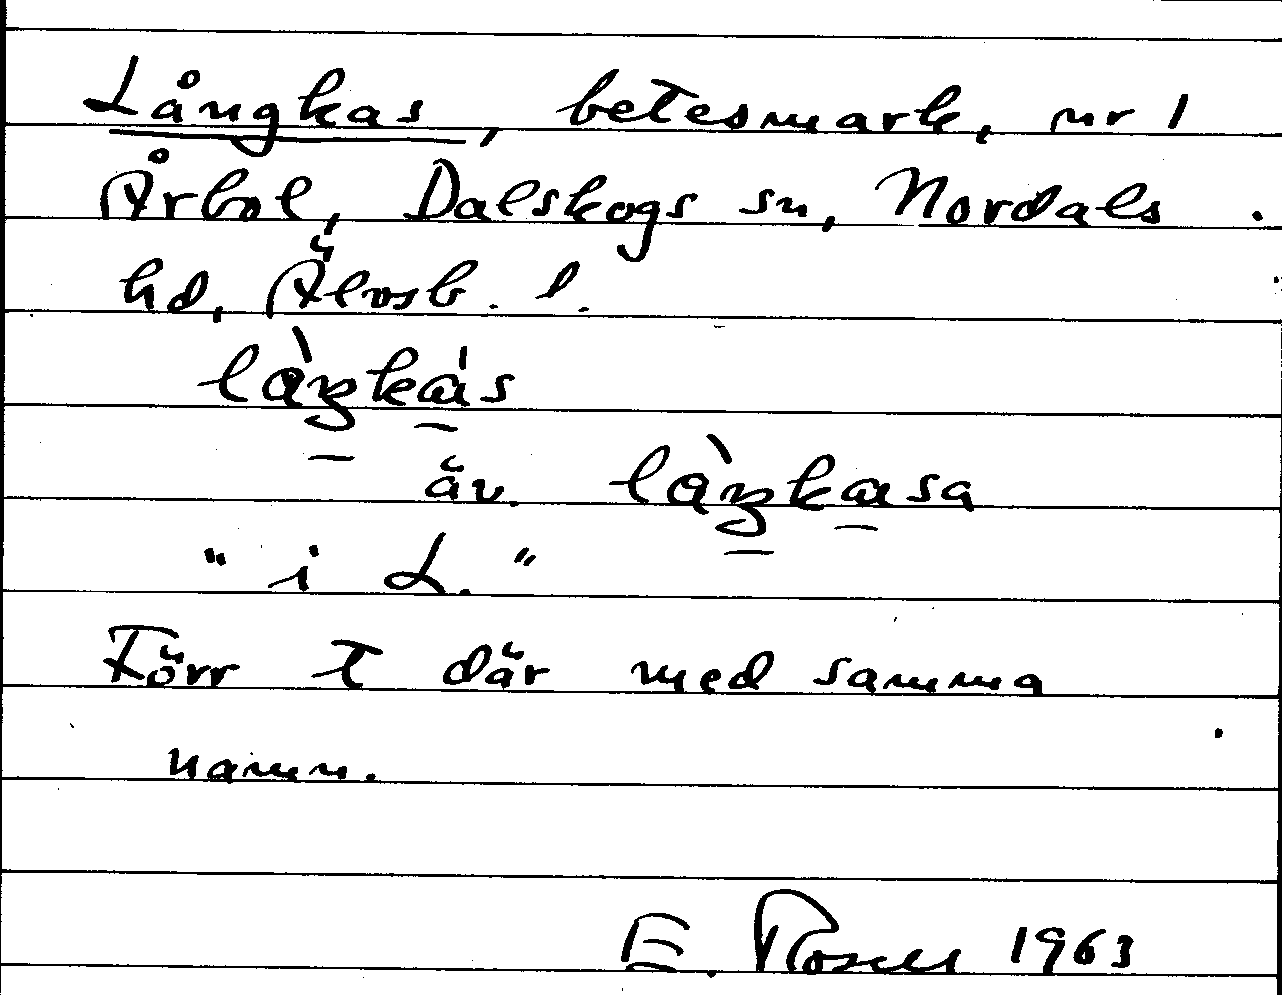 Långkas, betesmark, nr 1
Årbol, Dalskogs sn, Nordals
hd, Älvsb. l.
làŋkás
äv. làŋkasa
"i L."
Förr t där med samma
namn.
E. Rosell 1963